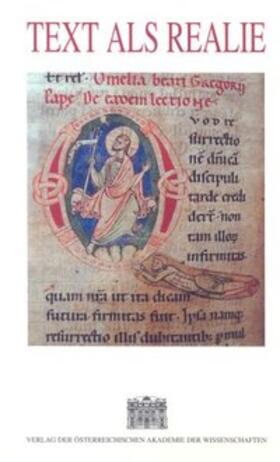 TEXT ALS REALIE
Et rel. Omelia beati Gregorii
Pape De eadem lectione
uod re
surrectio
nē dn̄icā
discipuli
tarde credi
dert̄ non
tam illoꝝ
infirmitas
quam nr̄a ut ita dicam
futura firmitas fuit. Ipsa namqꝫ
resurrectio illis dubitantibꝫ p
VERLAG DER ÖSTERREICHISCHEN AKADEMIE DER WISSENSCHAFTEN